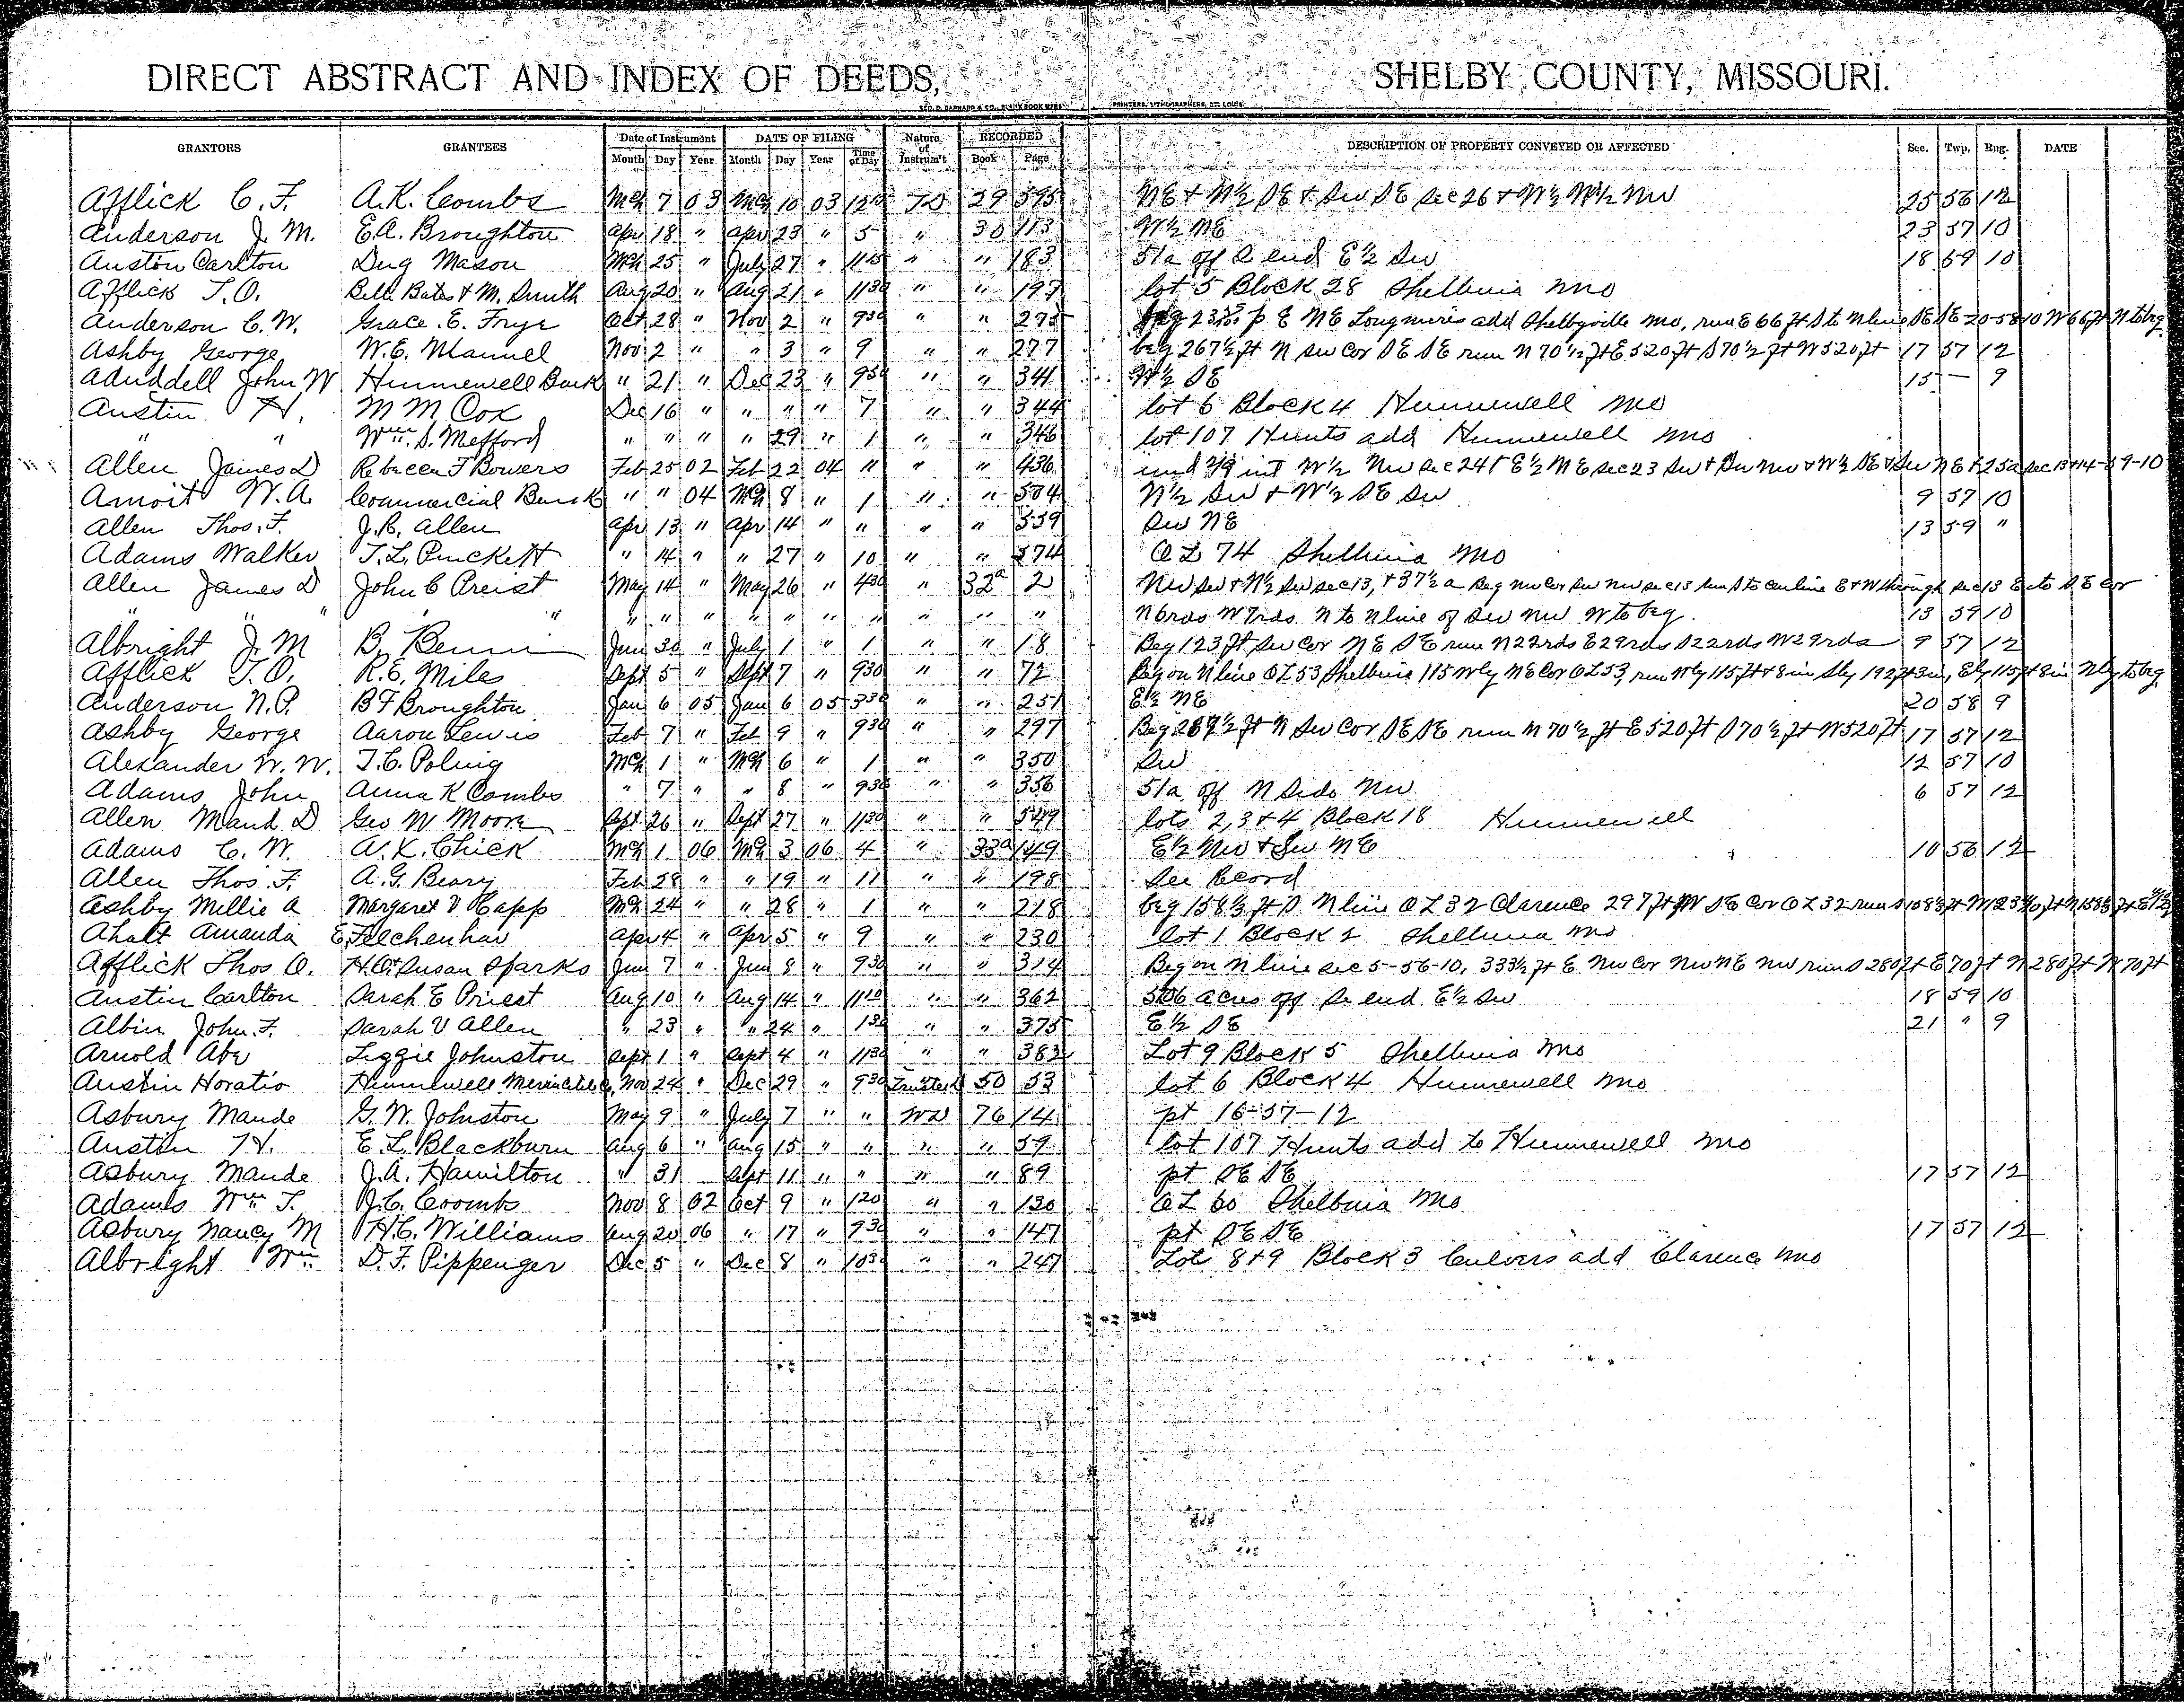 DIRECT ABSTRACT AND INDEX OF DEEDS, SHELBY COUNTY, MISSOURI.
GEO. D. BARNARD & CO., BLANK BOOK MFRS. PRINTERS, LITHOGRAPHERS, ST. LOUIS.
GRANTORS GRANTEES Date of Instrument DATE OF FILING Nature of Instrum't RECORDED DESCRIPTION OF PROPERTY CONVEYED OR AFFECTED Sec. Twp. Rng. DATE
Month Day Year Month Day Year Time of Day Book Page
Afflick C. F. A. K. Combs Mch 7 03 Mch 10 03 29 595 NE + N½ SE + SW SE Sec 26 + W½ NW 25 56 12
Anderson J. M. E. A. Broughton Apr 18 " Apr 23 " 5 " 30 113 W½ NE 23 57 10
Austin Carlton Dug Mason Mch 25 " July 27 " 1115 " " 183 51a off S end E½ SW 18 59 10
Afflick T. O. Bell Bates & M. Smith Aug 20 " Aug 21 " 1130 " " 197 lot 5 Block 28 Shelbina Mo
Anderson C. W. Grace E. Frye Oct 28 " Nov 2 " 930 " " 275 E NE Longmires add Shelbyville Mo, run E 66 ft S to N line SE SE 20-58-10 W 66 ft N to beg
Ashby George W. E. Mannel Nov 2 " " 3 " 9 " " 277 beg 267½ ft N SW Cor SE SE run N 70½ ft E 520 ft S 70½ ft W 520 ft 17 57 12
Aduddell John W Hunnewell Bank " 21 " Dec 23 " 930 " " 341 W½ SE 15 — 9
Austin H. M M Cox Dec 16 " " " " 7 " " 344 lot 6 Block 4 Hunnewell Mo
" " Wm. S. Mefford " " " " 29 " 1 " " 346 lot 107 Hunts add Hunnewell Mo
Allen James D Rebecca F Bowers Feb 25 02 Feb 22 04 11 " " 436 und 2/9 int W½ NW sec 24 + E½ NE sec 23 SW + SW NW + W½ SE + SW NE + 25a sec 13+14-59-10
Amoit W. A. Commercial Bank " " 04 Mch 8 " 1 " " 504 N½ SW + W½ SE SW 9 57 10
Allen Thos. F. J. R. Allen Apr 13 " Apr 14 " " " " 559 SW NE 13 59 "
Adams Walker T. L. Puckett " 14 " " 27 " 10 " " 574 O L 74 Shelbina Mo
Allen James D John C Preist May 14 " May 26 " 430 " 32a 2 NW SW + N½ SW sec 13, + 37½ a Beg NW Cor SW NW sec 13 run S to Cen line E + W through sec 13 E to SE cor
" " " " " " " " " " " " " N 6 rds W 7 rds N to N line of SW NW W to beg. 13 59 10
Albright J. M B. Jun 30 " July 1 " 1 " " 18 Beg 123 ft SW Cor NE SE run N 22 rds E 29 rds S 22 rds W 29 rds 9 57 12
Afflick T. O. R. E. Miles Sept 5 " Sept 7 " 930 " " 72 Beg on N line OL 53 Shelbina 115 Wly NE Cor OL 53, run Wly 115 ft + 8 in Sly 192 ft 3 in, Ely 115 ft 8 in Nly to beg
Anderson N. P. B F Broughton Jan 6 05 Jan 6 05 330 " " 251 E½ NE 20 58 9
Ashby George Aaron Lewis Feb 7 " Feb 9 " 930 " " 297 Beg 267½ ft N SW Cor SE SE run N 70½ ft E 520 ft S 70½ ft W 520 ft 17 57 12
Alexander W. W. T. C. Poling Mch 1 " Mch 6 " 1 " " 350 SW 12 57 10
Adams John Anna K Combs " 7 " " 8 " 930 " " 356 51a off N Side NW 6 57 12
Allen Maud D Geo W Moore Sept 26 " Sept 27 " 1130 " " 549 lots 2, 3 & 4 Block 18 Hunnewell
Adams C. W. A. K. Chick Mch 1 06 Mch 3 06 4 " 33a 149 E½ NW + SW NE 10 56 12
Allen Thos. F. A. G. Beary Feb 28 " " 19 " 11 " " 198 See Record
Ashby Millie A Margaret V Capp Mch 24 " " 28 " 1 " " 218 beg 158½ ft S N line O L 32 Clarence 297 ft W SE Cor O L 32 run
Ahalt Amanda E. Felchenhav Apr 4 " Apr 5 " 9 " " 230 lot 1 Block 2 Shelbina Mo
Afflick Thos O. H. O + Susan Sparks Jun 7 " Jun 8 " 930 " " 314 Beg on N line sec 5-56-10, 333½ ft E NW Cor NW NE NW run S 280 ft E 70 ft N 280 ft W 70 ft
Austin Carlton Sarah E Priest Aug 10 " Aug 14 " 1120 " " 362 5106 acres off S end E½ SW 18 59 10
Albin John F. Sarah V Allen " 23 " " 24 " 130 " " 375 E½ SE 21 " 9
Arnold Abe Lizzie Johnston Sept 1 " Sept 4 " 1130 " " 382 Lot 9 Block 5 Shelbina Mo
Austin Horatio Hunnewell Mercantile Co. Nov 24 " Dec 29 " 930 Trustees D 50 53 lot 6 Block 4 Hunnewell Mo
Asbury Maude G. W. Johnston May 9 " July 7 " " WD 76 14 pt 16-57-12
Austin H. E. L. Blackburn Aug 6 " Aug 15 " " " " 59 lot 107 Hunts add to Hunnewell Mo
Asbury Maude J. A. Hamilton " 31 Sept 11 " " " " 89 pt SE SE 17 57 12
Adams Wm. T. J. C. Coombs Nov 8 02 Oct 9 " 120 " " 130 O L 60 Shelbina Mo
Asbury Nancy M H. C. Williams Aug 20 06 " 17 " 930 " " 147 pt SE SE 17 57 12
Albright Wm D. F. Pippenger Dec 5 " Dec 8 " 1030 " " 247 Lots 8+9 Block 3 Culvers add Clarence Mo